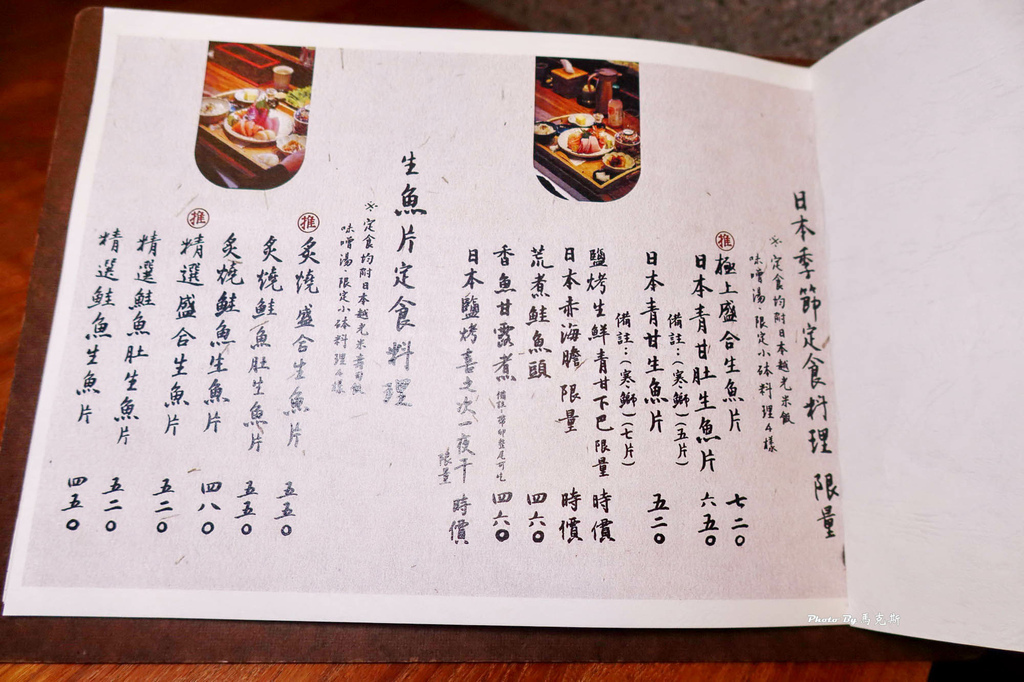 日本季節定食料理 限量
※定食均附日本越光米飯
味噌湯·限定小砵料理4樣
推 極上盛合生魚片 七二〇
日本青甘肚生魚片 六五〇
備註:(寒鰤)(五片)
日本青甘生魚片 五二〇
備註:(寒鰤)(七片)
鹽烤生鮮青甘下巴限量 時價
日本赤海膽 限量 時價
荒煮鮭魚頭 四六〇
香魚甘露煮 四六〇
日本鹽烤喜之次一夜干 時價
限量
生魚片定食料理
※定食均附日本越光米壽司飯
味噌湯·限定小砵料理4樣
推 炙燒盛合生魚片 五五〇
炙燒鮭魚肚生魚片 五五〇
炙燒鮭魚生魚片 四八〇
推 精選盛合生魚片 五二〇
精選鮭魚肚生魚片 五二〇
精選鮭魚生魚片 四五〇
Photo By 馬克斯